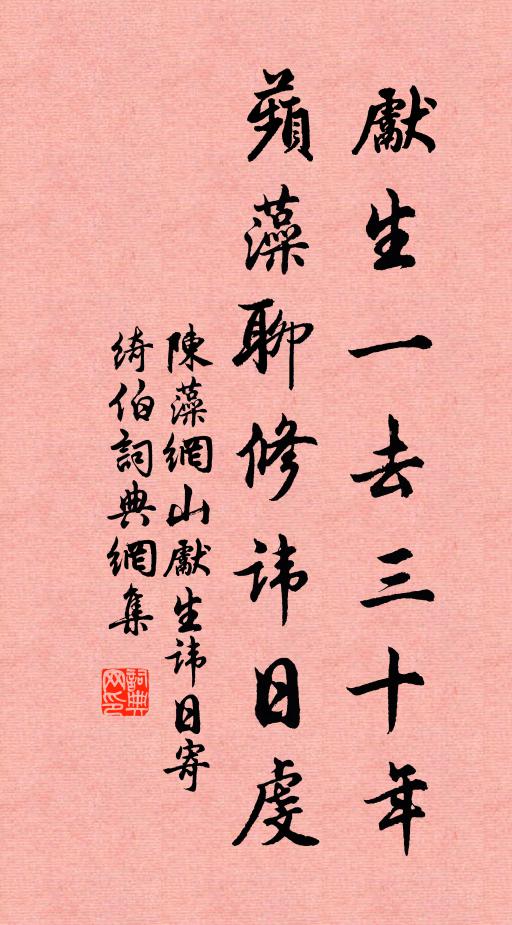 獻生一去三十年
蘋藻聊修諱日虔
陳藻網山獻生諱日寄
綺伯詞典網集
詞典
网印